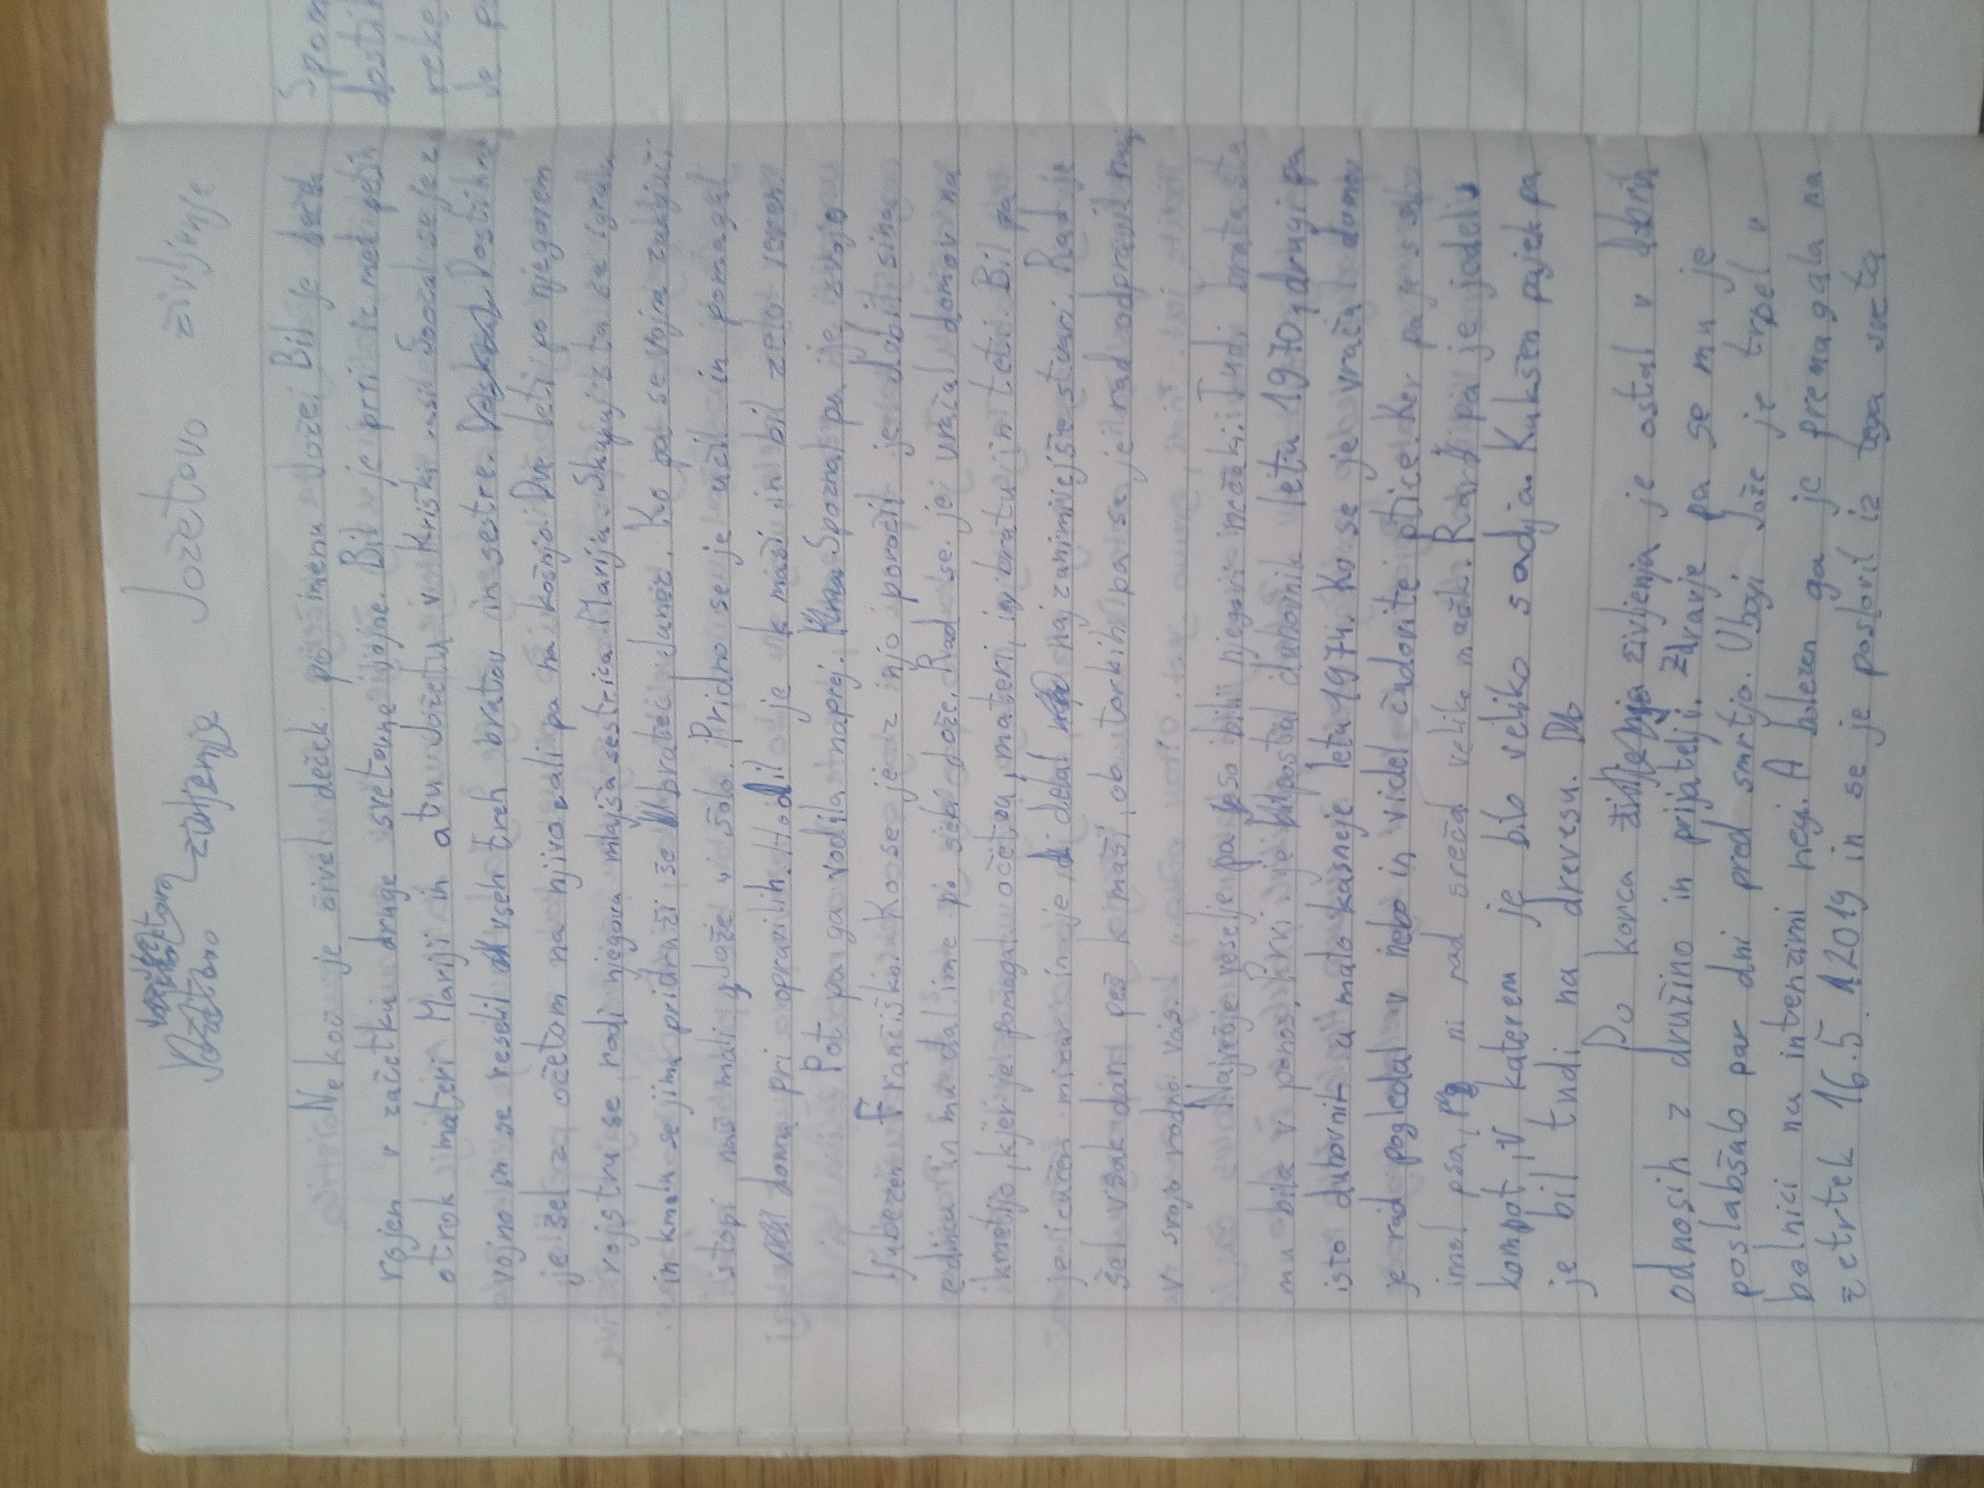 življenje Jožetovo življenje
Nekoč je živel deček po imenu Jože. Bil je
rojen v začetku druge svetovne vojne. Bil je prvi iz med petih
otrok materi Mariji in atu Jožetu v Kriški vasi. Soočal se je z
vojno in se veselil vseh treh bratov in sestre. Dostikrat
je šel z očetom na njivo ali pa na košnjo. Dve leti po njegovem
rojstvu se rodi njegova mlajša sestrica Marija. Skupaj sta se igrala
in kmalu se jima pridruži še bratec Lunež. Ko pa se vojna zaključi
istopi naš mali Jože v šolo. Pridno se je učil in pomagal
doma pri opravilih. Hodil je k maši in bil zelo veren.
Pot pa ga vodila naprej. Spoznal pa je svojo
ljubezen Frančiško. Ko se je z njo poročil je dobil sina
edinca in mu dal ime po sebi Jože. Rad se je vračal domov na
kmetijo, kjer je pomagal očetu, materi, bratu in teti. Bil pa
je izučen mizar in je delal najzanimivejše stvari. Rad je
šel vsak dan peš k maši, ob torkih pa se je rad odpravil
v svojo rodno vas.
Največje veselje pa so bili njegovi nečaki. Tudi brata sta
mu bila v ponos. Prvi je postal duhovnik leta 1970, drugi pa
isto duhovnik a malo kasneje leta 1974. Ko se je vračal domov
je rad pogledal v nebo in videl čudovite ptice. Ker pa je s sabo
imel psa, pa ni rad srečal veliko mačk. Rad pa je jedel
kompot, v katerem je bilo veliko sadja. Kukšen pajek pa
je bil tudi na drevesu.
Do konca življenja je ostal v dobrih
odnosih z družino in prijatelji. Zdravje pa se mu je
poslabšalo par dni pred smrtjo. Ubogi Jože je trpel v
bolnici na intenzivni negi. A bolezen ga je premagala na
četrtek 16.5.2019 in se je poslovil iz tega sveta